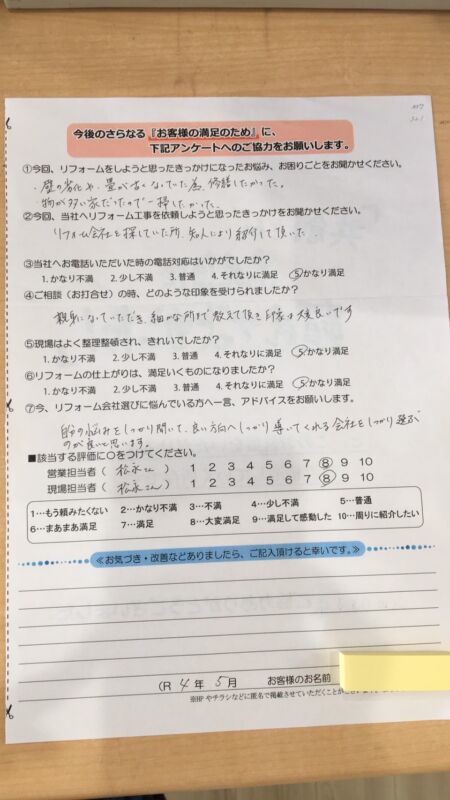 今後のさらなる『お客様の満足のため』に、
下記アンケートへのご協力をお願いします。
①今回、リフォームをしようと思ったきっかけになったお悩み、お困りごとをお聞かせください。
・壁の劣化や、畳が古くなっていた為、修繕したかった。
・物が多い家だったので一掃したかった
②今回、当社へリフォーム工事を依頼しようと思ったきっかけをお聞かせください。
リフォーム会社を探していた所、知人により紹介して頂いた
③当社へお電話いただいた時の電話対応はいかがでしたか？
1. かなり不満 2. 少し不満 3. 普通 4. それなりに満足 5. かなり満足
④ご相談（お打合せ）の時、どのような印象を受けられましたか？
親身になっていただき、細かな所まで教えて頂き印象は大変良いです
⑤現場はよく整理整頓され、きれいでしたか？
1. かなり不満 2. 少し不満 3. 普通 4. それなりに満足 5. かなり満足
⑥リフォームの仕上がりは、満足いくものになりましたか？
1. かなり不満 2. 少し不満 3. 普通 4. それなりに満足 5. かなり満足
⑦今、リフォーム会社選びに悩んでいる方へ一言、アドバイスをお願いします。
自分の悩みをしっかり聞いて、良い方向へしっかり導いてくれる会社をしっかり選ぶ
のが良いと思います。
■該当する評価に○をつけてください。
営業担当者（ 松永さん ） 1 2 3 4 5 6 7 8 9 10
現場担当者（ 松永さん ） 1 2 3 4 5 6 7 8 9 10
1…もう頼みたくない 2…かなり不満 3…不満 4…少し不満 5…普通
6…まあまあ満足 7…満足 8…大変満足 9…満足して感動した 10…周りに紹介したい
≪お気づき・改善などありましたら、ご記入頂けると幸いです。≫
（R 4 年 5 月 お客様のお名前
※HPやチラシなどに匿名で掲載させていただくことが